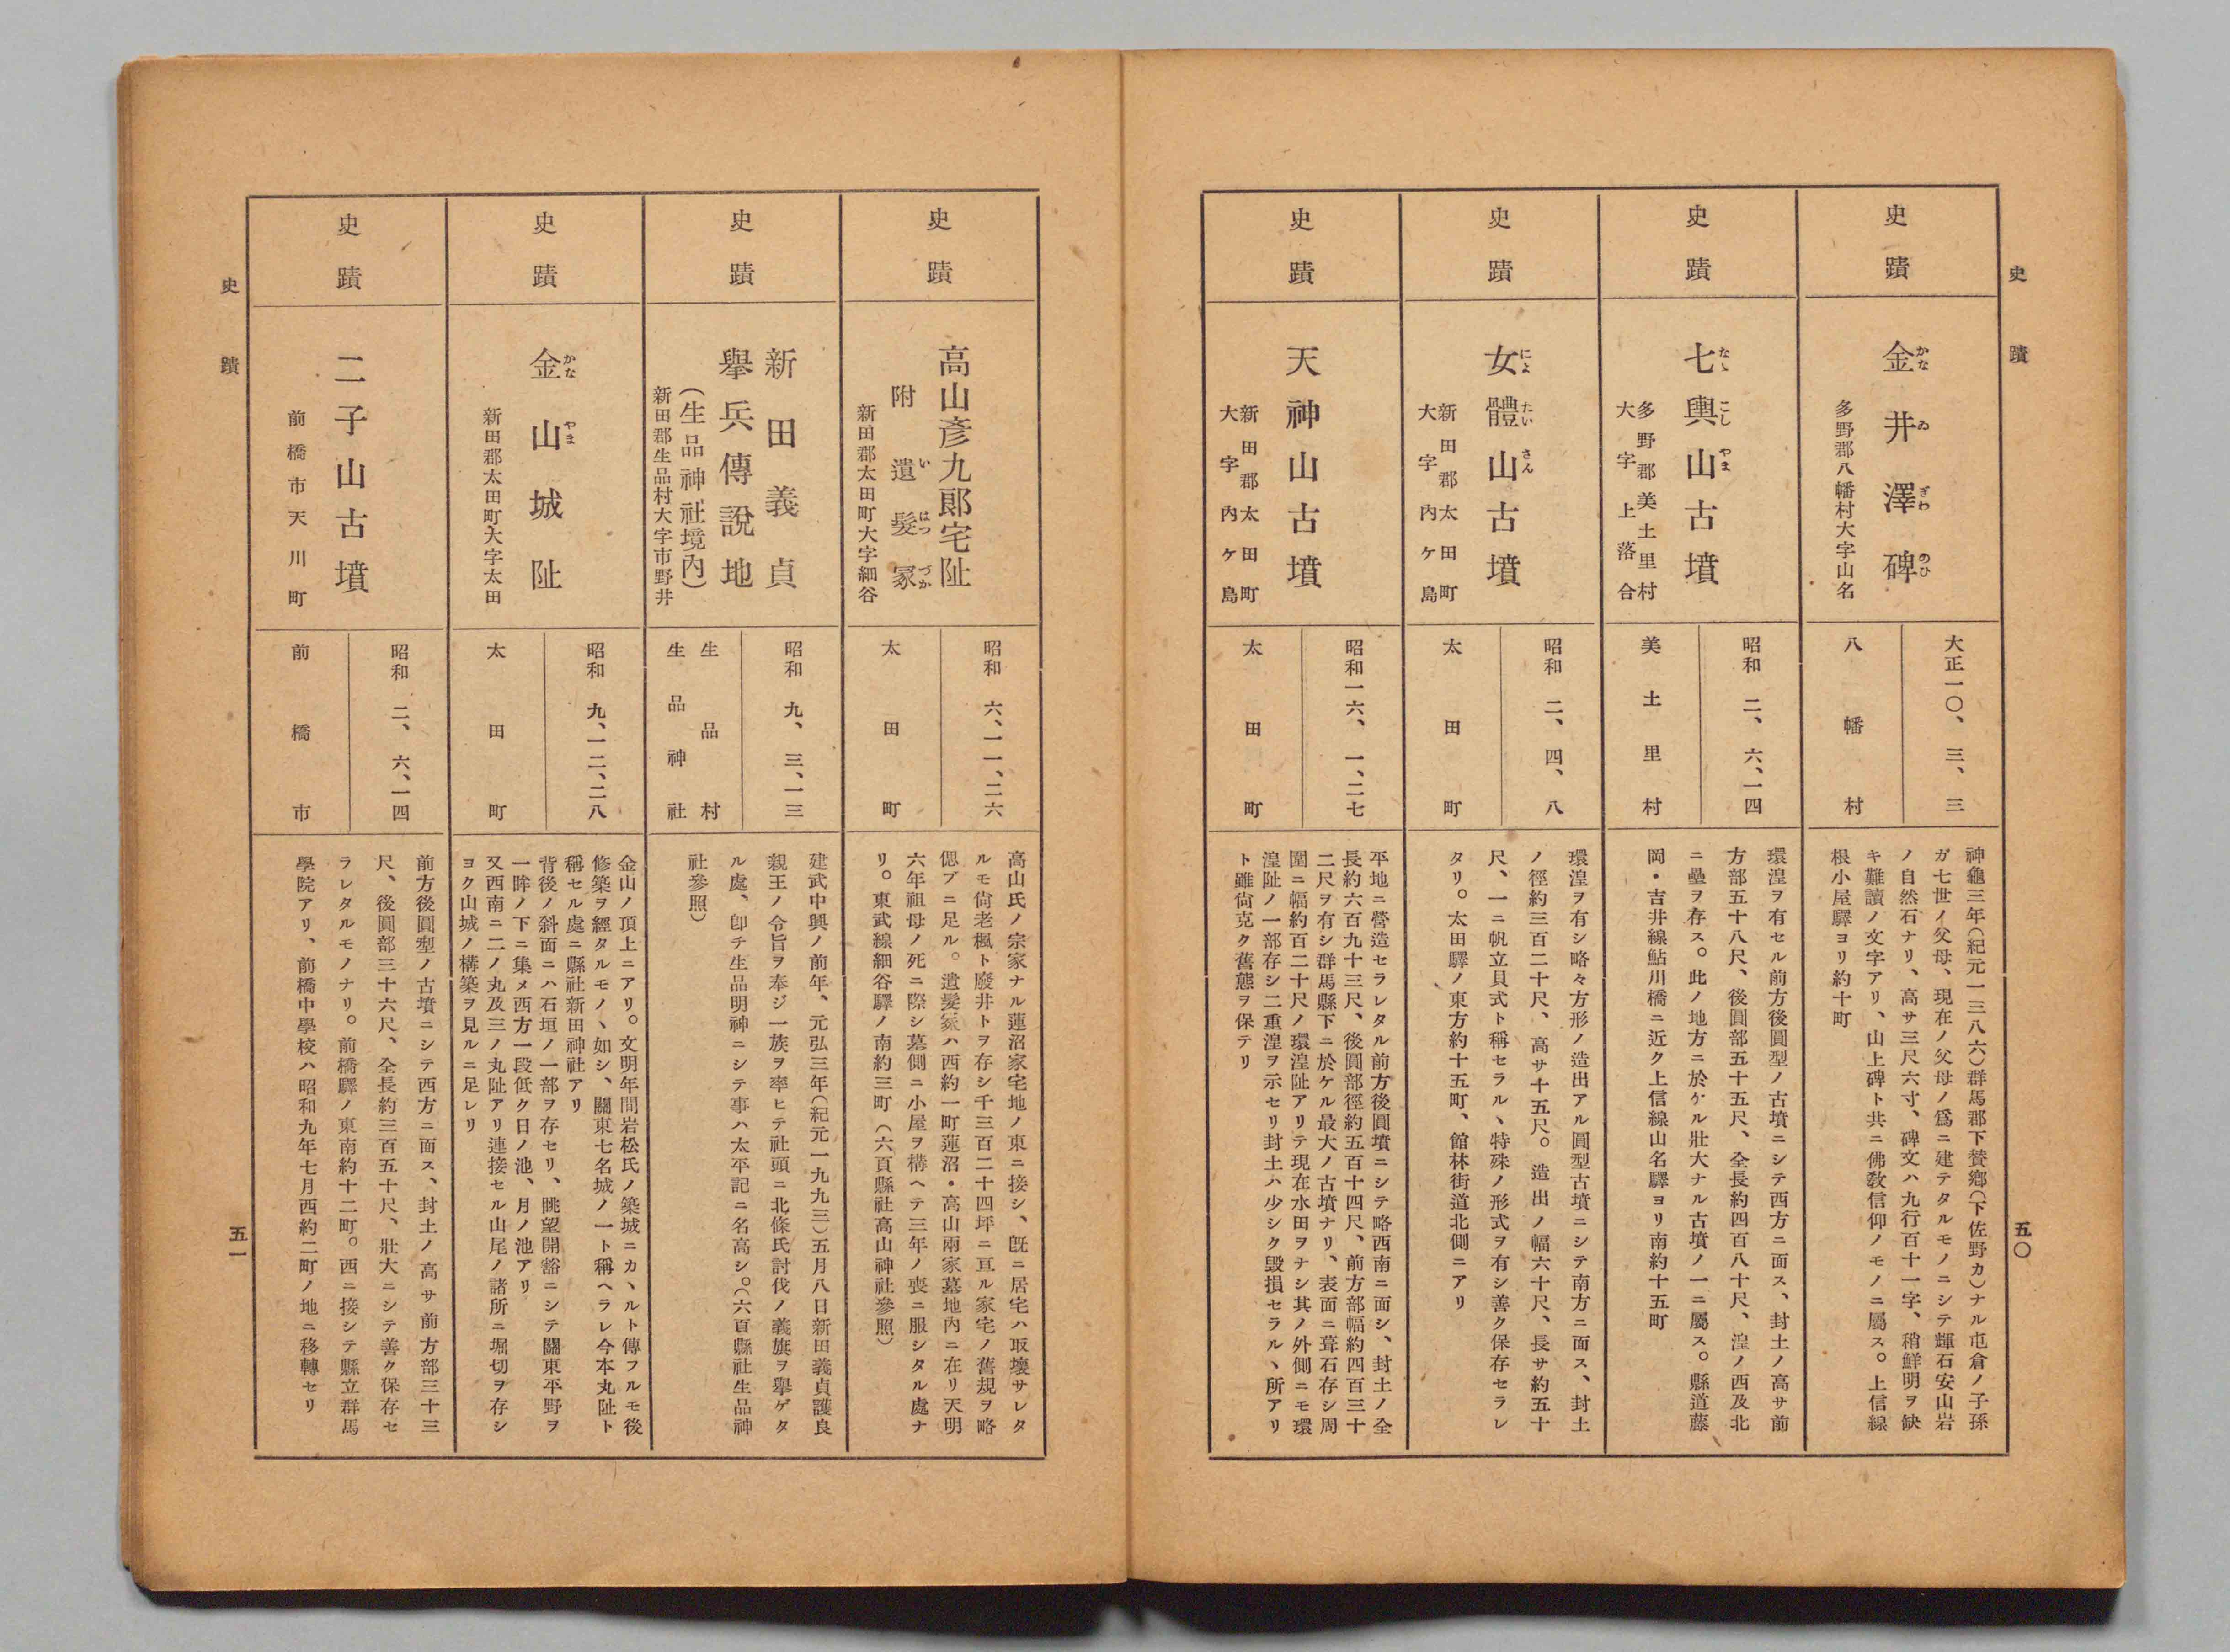 史蹟
五〇
史蹟
金井澤碑
かなゐざわのひ
多野郡八幡村大字山名
大正一〇、三、三
八幡村
神龜三年(紀元一三八六)群馬郡下賛郷(下佐野カ)ナル屯倉ノ子孫
ガ七世ノ父母、現在ノ父母ノ爲ニ建テタルモノニシテ輝石安山岩
ノ自然石ナリ、高サ三尺六寸、碑文ハ九行百十一字、稍鮮明ヲ缺
キ難讀ノ文字アリ、山上碑ト共ニ佛敎信仰ノモノニ屬ス。上信線
根小屋驛ヨリ約十町
史蹟
七輿山古墳
なゝこしやま
多野郡美土里村
大字上落合
昭和二、六、一四
美土里村
環湟ヲ有セル前方後圓型ノ古墳ニシテ西方ニ面ス、封土ノ高サ前
方部五十八尺、後圓部五十五尺、全長約四百八十尺、湟ノ西及北
ニ壘ヲ存ス。此ノ地方ニ於ケル壯大ナル古墳ノ一ニ屬ス。縣道藤
岡・吉井線鮎川橋ニ近ク上信線山名驛ヨリ南約十五町
史蹟
女體山古墳
によたいさん
新田郡太田町
大字內ケ島
昭和二、四、八
太田町
環湟ヲ有シ略々方形ノ造出アル圓型古墳ニシテ南方ニ面ス、封土
ノ徑約三百二十尺、高サ十五尺。造出ノ幅六十尺、長サ約五十
尺、一ニ帆立貝式ト稱セラルヽ特殊ノ形式ヲ有シ善ク保存セラレ
タリ。太田驛ノ東方約十五町、館林街道北側ニアリ
史蹟
天神山古墳
新田郡太田町
大字內ケ島
昭和一六、一、二七
太田町
平地ニ營造セラレタル前方後圓墳ニシテ略西南ニ面シ、封土ノ全
長約六百九十三尺、後圓部徑約五百十四尺、前方部幅約四百三十
二尺ヲ有シ群馬縣下ニ於ケル最大ノ古墳ナリ、表面ニ葺石存シ周
圍ニ幅約百二十尺ノ環湟阯アリテ現在水田ヲナシ其ノ外側ニモ環
湟阯ノ一部存シ二重湟ヲ示セリ封土ハ少シク毀損セラルヽ所アリ
ト雖尙克ク舊態ヲ保テリ
史蹟
高山彥九郎宅阯
附遺髮冢
いはつづか
新田郡太田町大字細谷
昭和六、一一、二六
太田町
高山氏ノ宗家ナル蓮沼家宅地ノ東ニ接シ、旣ニ居宅ハ取壞サレタ
ルモ尙老楓ト廢井トヲ存シ千三百二十四坪ニ亘ル家宅ノ舊規ヲ略
偲ブニ足ル。遺髮冢ハ西約一町蓮沼・高山兩家墓地內ニ在リ天明
六年祖母ノ死ニ際シ墓側ニ小屋ヲ構ヘテ三年ノ喪ニ服シタル處ナ
リ。東武線細谷驛ノ南約三町(六頁縣社高山神社參照)
史蹟
新田義貞
擧兵傳說地
(生品神社境內)
新田郡生品村大字市野井
昭和九、三、一三
生品村
生品神社
建武中興ノ前年、元弘三年(紀元一九九三)五月八日新田義貞護良
親王ノ令旨ヲ奉ジ一族ヲ率ヒテ社頭ニ北條氏討伐ノ義旗ヲ擧ゲタ
ル處、卽チ生品明神ニシテ事ハ太平記ニ名高シ。(六頁縣社生品神
社參照)
史蹟
金山城阯
かなやま
新田郡太田町大字太田
昭和九、一二、二八
太田町
金山ノ頂上ニアリ。文明年間岩松氏ノ築城ニカヽルト傳フルモ後
修築ヲ經タルモノヽ如シ、關東七名城ノ一ト稱ヘラレ今本丸阯ト
稱セル處ニ縣社新田神社アリ
背後ノ斜面ニハ石垣ノ一部ヲ存セリ、眺望開豁ニシテ關東平野ヲ
一眸ノ下ニ集メ西方一段低ク日ノ池、月ノ池アリ
又西南ニ二ノ丸及三ノ丸阯アリ連接セル山尾ノ諸所ニ堀切ヲ存シ
ヨク山城ノ構築ヲ見ルニ足レリ
史蹟
二子山古墳
前橋市天川町
昭和二、六、一四
前橋市
前方後圓型ノ古墳ニシテ西方ニ面ス、封土ノ高サ前方部三十三
尺、後圓部三十六尺、全長約三百五十尺、壯大ニシテ善ク保存セ
ラレタルモノナリ。前橋驛ノ東南約十二町。西ニ接シテ縣立群馬
學院アリ、前橋中學校ハ昭和九年七月西約二町ノ地ニ移轉セリ
史蹟
五一